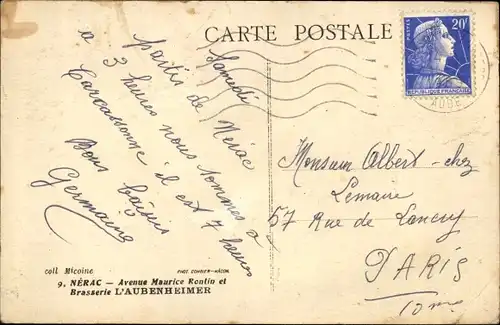 CARTE POSTALE
Samedi
partis de Nérac
à 3 heures nous sommes à
Carcassonne il est 7 heures
Bons baisers
Germaine
POSTES
20F
REPUBLIQUE FRANÇAISE
AUDE
Monsieur Albert chez
Lemaire
57 Rue de Lancry
PARIS
10me
coll Micoine
PHOT. COMBIER-MACON
9. NÉRAC — Avenue Maurice Rontin et
Brasserie L'AUBENHEIMER